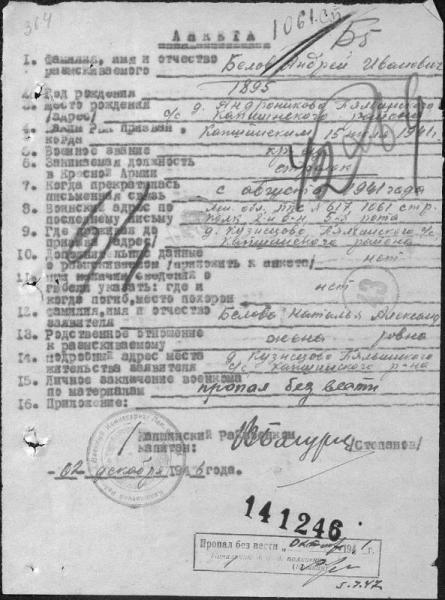 364
1061 сп
Б5
АНКЕТА
1. Фамилия, имя и отчество Белов Андрей Иванович
разыскиваемого
2. Год рождения 1895
3. Место рождения д. Андрониково Пялинского
/адрес/ с/с Капшинского района
4. Каким РВК призван, Капшинским 15 июля 1941г.
когда
5. Военное звание кр-ец
6. Занимаемая должность стрелок
в Красной Армии
7. Когда прекратилась с августа 1941 года
письменная связь
8. Воинский адрес по ППС № 617, 1061 стр.
последнему письму полк 2й б-н, 5-я рота
9. Где проживал до д. Кузнецово Пялинского с/с
адрес/ Капшинского района
10. данные нет
о разыскиваемом /приложить к анкете/
11. При наличии сведений о нет
гибели указать: где и
когда погиб, место похорон
12. Фамилия, имя и отчество Белова Наталья Александ
заявителя
13. Родственное отношение жена ровна
к разыскиваемому
14. Подробный адрес места д. Кузнецово Пялинского
жительства заявителя с/с Капшинского р-на
15. Личное заключение военкома пропал без вести
по материалам
16. Приложение:
Капшинский райвоенком
капитан: /Степанов/
- 02 декабря 1946 года.
141246
Пропал без вести „ октябре 1941 г.
5.7.47